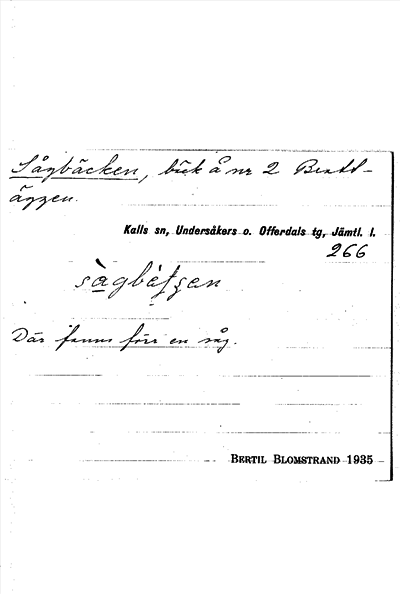 Sågbäcken, bäck å nr 2
äggen.
Kalls sn, Undersåkers o. Offerdals tg, Jämtl. l.
266
Där fanns förr en såg.
BERTIL BLOMSTRAND 1935